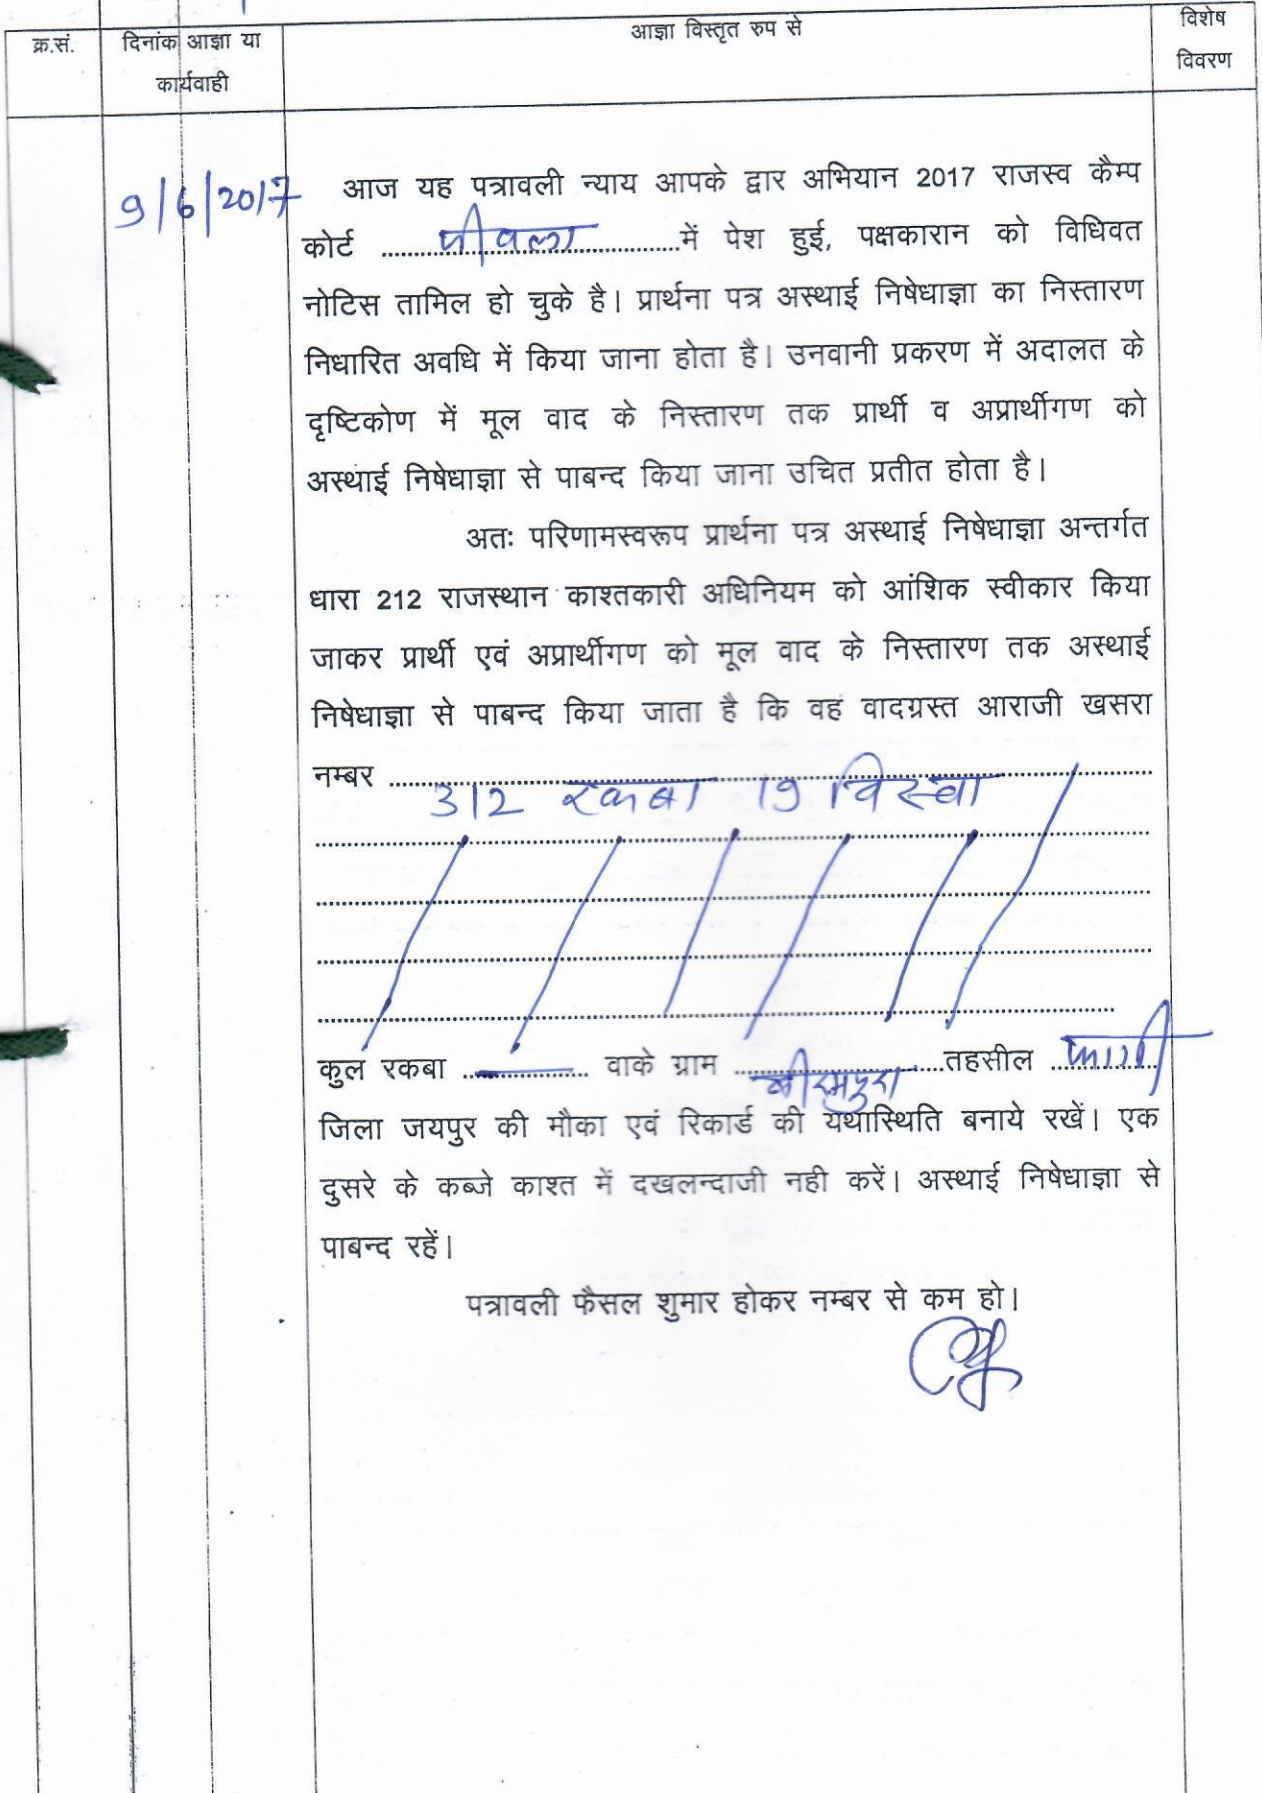 क्र.सं. दिनांक आज्ञा या आज्ञा विस्तृत रुप से विशेष
कार्यवाही विवरण
9/6/2017 आज यह पत्रावली न्याय आपके द्वार अभियान 2017 राजस्व कैम्प
कोर्ट ........................................में पेश हुई, पक्षकारान को विधिवत
नोटिस तामिल हो चुके है। प्रार्थना पत्र अस्थाई निषेधाज्ञा का निस्तारण
निधारित अवधि में किया जाना होता है। उनवानी प्रकरण में अदालत के
दृष्टिकोण में मूल वाद के निस्तारण तक प्रार्थी व अप्रार्थीगण को
अस्थाई निषेधाज्ञा से पाबन्द किया जाना उचित प्रतीत होता है।
अतः परिणामस्वरूप प्रार्थना पत्र अस्थाई निषेधाज्ञा अन्तर्गत
धारा 212 राजस्थान काश्तकारी अधिनियम को आंशिक स्वीकार किया
जाकर प्रार्थी एवं अप्रार्थीगण को मूल वाद के निस्तारण तक अस्थाई
निषेधाज्ञा से पाबन्द किया जाता है कि वह वादग्रस्त आराजी खसरा
नम्बर ........................................
312 रकबा 19 विस्वा
कुल रकबा ................ वाके ग्राम ................तहसील फागी
जिला जयपुर की मौका एवं रिकार्ड की यथास्थिति बनाये रखें। एक
दुसरे के कब्जे काश्त में दखलन्दाजी नही करें। अस्थाई निषेधाज्ञा से
पाबन्द रहें।
पत्रावली फैसल शुमार होकर नम्बर से कम हो।